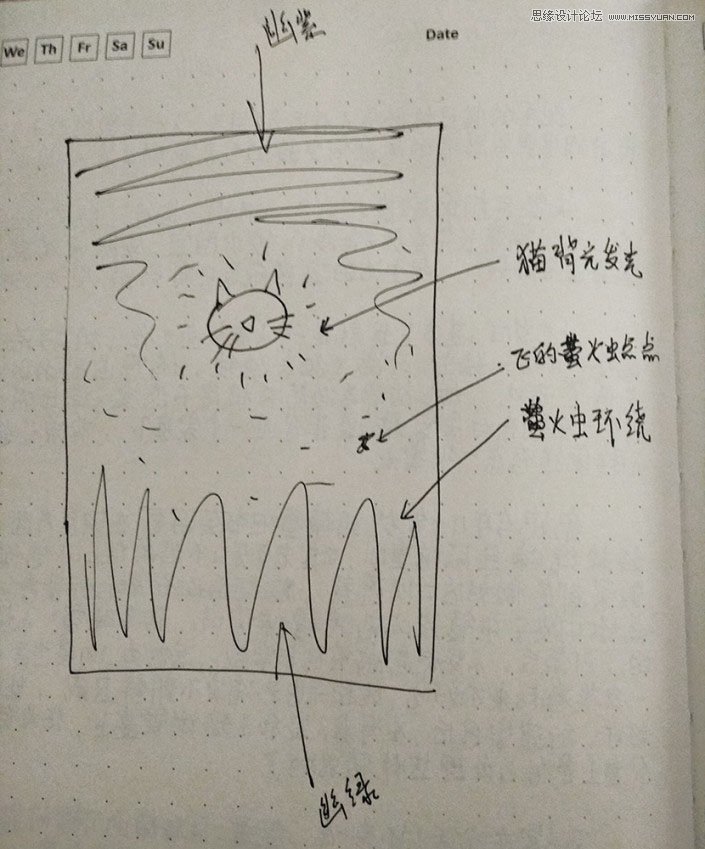 思缘设计论坛 WWW.MISSYUAN.COM
幽紫
Date
We Th Fr Sa Su
猫背光发光
飞的萤火虫点点
萤火虫环绕
幽绿